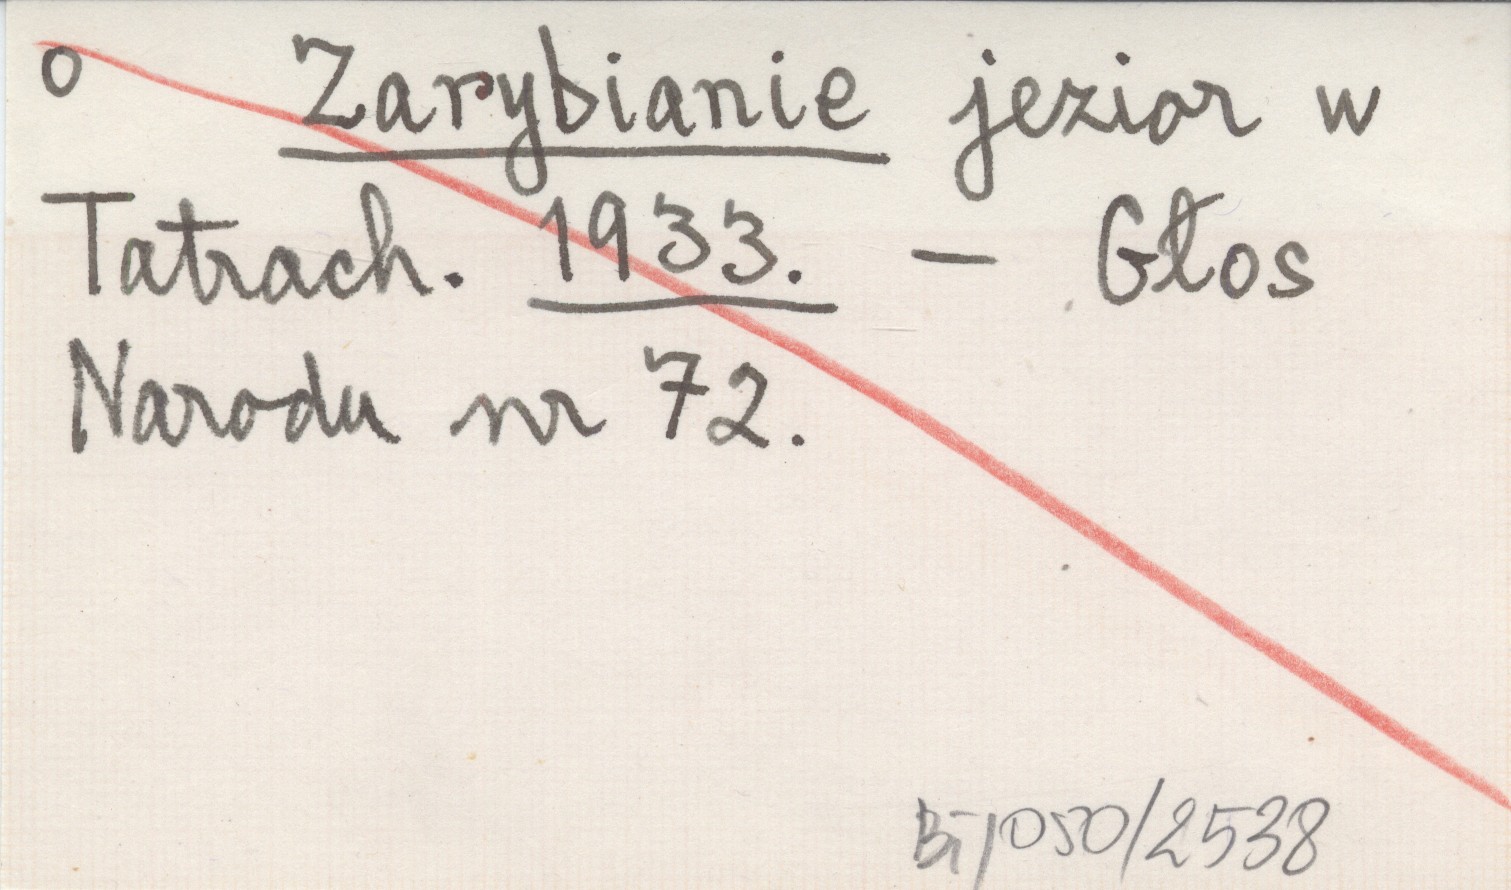 o Zarybianie jezior w
Tatrach. 1933. - Głos
Narodu nr 72.
Bi/050/2538